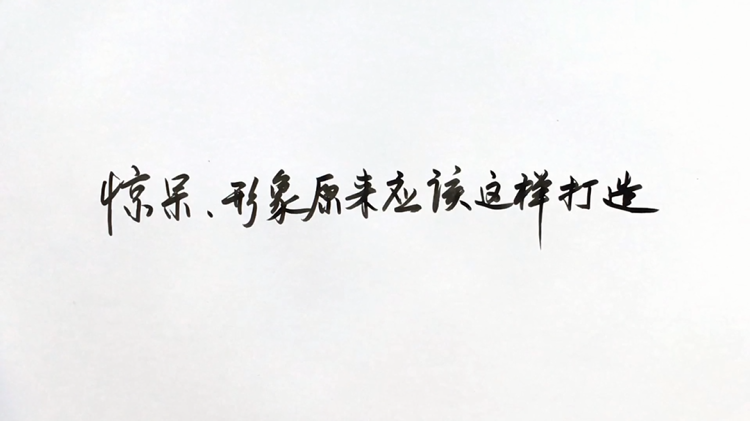 惊呆、形象原来应该这样打造